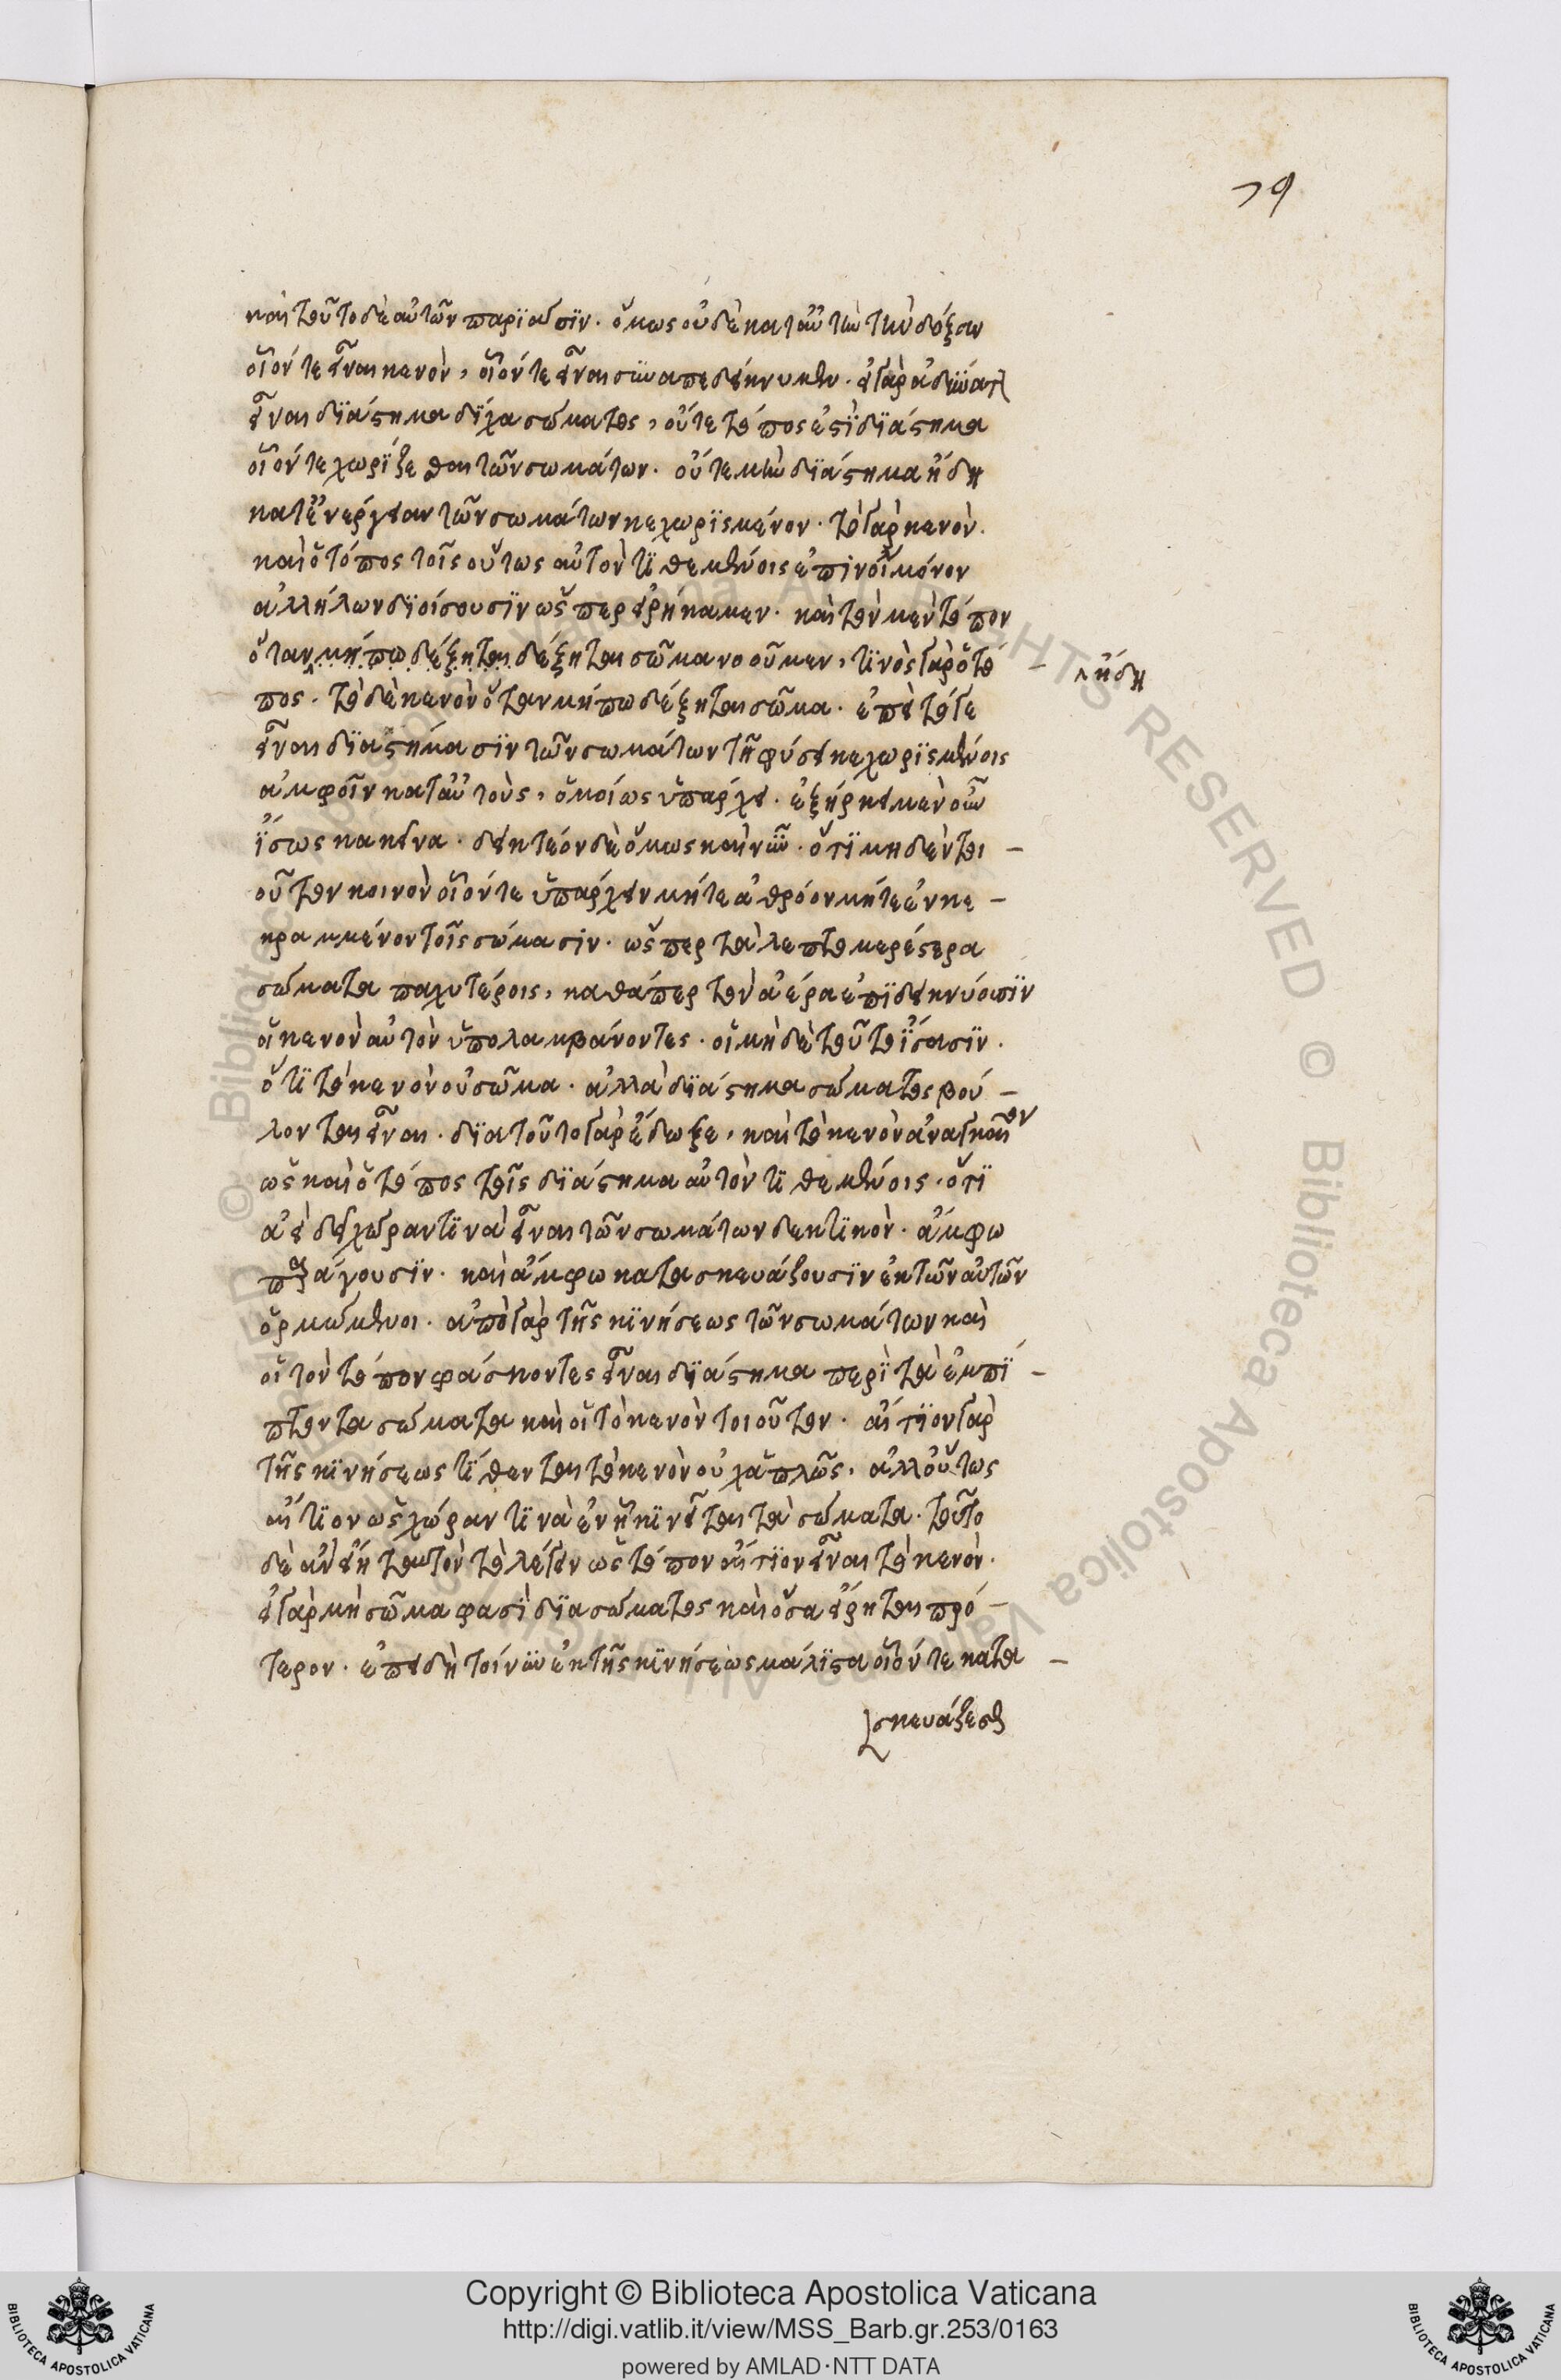 79
καὶ τοῦτο δὲ αὐτῶν παρϊᾶσϊν. ὅμως οὐδὲ κατ αὐτὴν τὴν δόξαν
οἷόν τε εἶναι κενὸν, οἷόν τε εἶναι συναπεδείκνυμεν. εἰ γὰρ ἀδύνατον
εἶναι δϊάστημα δίχα σώματος, οὔτε τόπος ἐστὶ δϊάστημα
οἷόν τε χωρίζεσθαι τῶν σωμάτων. οὔτε μὴν δϊάστημα ἤδη
κατ ἐνέργειαν τῶν σωμάτων κεχωρϊσμένον. τὸ γὰρ κενὸν.
καὶ ὁ τόπος τοῖς οὕτως αὐτὸν τϊθεμένοις ἐπινοίᾳ μόνον
ἀλλήλων διοίσουσϊν ὥσπερ εἰρήκαμεν. καὶ τὸν μὲν τόπον
ὅταν μήπω δέξηται δέξηται σῶμα νοοῦμεν, τϊνὸς γὰρ ὁ τό
^ ἤδη
πος. τὸ δὲ κενὸν ὅταν μήπω δέξηται σῶμα. ἐπεὶ τό γε
εἶναι δϊαστήμασϊν τῶν σωμάτων τῇ φύσει κεχωρϊσμένοις
ἀμφοῖν κατ αὐτοὺς, ὁμοίως ὑπάρχει. ἐξήρκει μὲν οὖν
ἴσως κἀκεῖνα. δεικτέον δὲ ὅμως καὶ νῦν. ὅτϊ μηδέν τοι
οῦτον κοινὸν οἷόν τε ὑπάρχειν μήτε ἀθρόον μήτε ἐνκε
κραμμένον τοῖς σώμασιν. ὥσπερ τὰ λεπτομερέστερα
σώματα παχυτέροις, καθάπερ τὸν ἀέρα ἐπϊδεικνύουσϊν
οἱ κενὸν αὐτὸν ὑπολαμβάνοντες. οἱ μὴ δὲ τοῦτο ἴσασϊν.
ὅτϊ τὸ κενὸν οὐ σῶμα. ἀλλὰ δϊάστημα σώματος βού
λονται εἶναι. δϊὰ τοῦτο γὰρ ἔδωξε, καὶ τὸ κενὸν ἀναγκαῖον
ὡς καὶ ὁ τόπος τοῖς δϊάστημα αὐτὸν τϊθεμένοις. ὅτϊ
ἀεὶ δεῖ χώραν τϊνὰ εἶναι τῶν σωμάτων δεκτϊκὸν. ἄμφω
παράγουσϊν. καὶ ἄμφω κατασκευάζουσϊν ἐκ τῶν αὐτῶν
ὁρμώμενοι. ἀπὸ γὰρ τῆς κϊνήσεως τῶν σωμάτων καὶ
οἱ τὸν τόπον φάσκοντες εἶναι δϊάστημα περὶ τὰ ἐμπϊ
πτοντα σώματα καὶ οἱ τὸ κενὸν τοιοῦτον. αἴτϊον γὰρ
τῆς κϊνήσεως τίθενται τὸ κενὸν οὐχ ἁπλῶς, ἀλλ οὕτως
αἴτϊον ὡς χώραν τϊνὰ ἐν ᾗ κϊνεῖται τὰ σώματα. τοῦτο
δὲ ἂν εἴη ταυτὸν τὸ λέγειν ὡς τόπον αἴτϊον εἶναι τὸ κενὸν.
εἰ γὰρ μὴ σῶμα φασὶ δϊὰ σώματος καὶ ὅσα εἴρηται πρό
τερον. ἐπειδὴ τοίνυν ἐκ τῆς κϊνήσεως μάλϊστα οἷόν τε κατα
σκευάζεσθαι
Copyright © Biblioteca Apostolica Vaticana
http://digi.vatlib.it/view/MSS_Barb.gr.253/0163
powered by AMLAD·NTT DATA